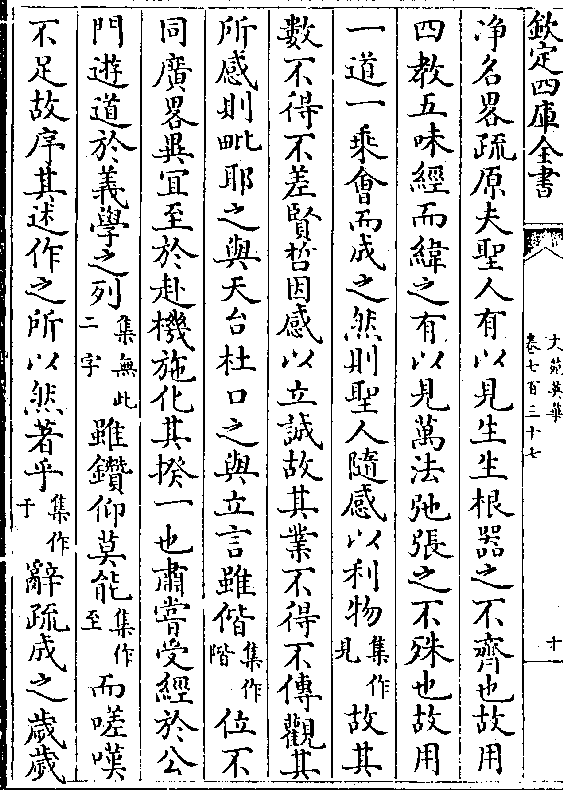 欽定四庫全書
文苑英華
卷七百三十七
十
净名畧疏原夫聖人有以見生生根器之不齊也故用
四教五味經而緯之有以見萬法弛張之不殊也故用
一道一乘會而成之然則聖人隨感以利物集作見故其
數不得不差賢哲因感以立誠故其業不得不傳觀其
所感則毗耶之與天台杜口之與立言雖偕集作階位不
同廣畧異宜至於赴機施化其揆一也肅嘗受經於公
門遊道於義學之列集無此二字雖鑽仰莫能集作至而嗟嘆
不足故序其述作之所以然著乎集作于辭疏成之歲歲